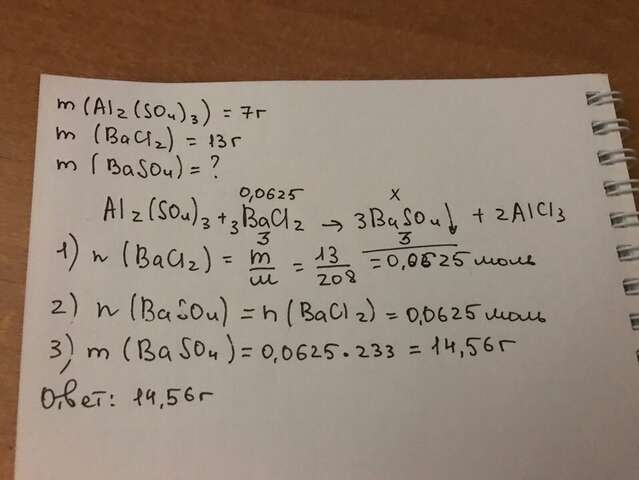 m (Al2(SO4)3) = 7г
m (BaCl2) = 13г
m (BaSO4) = ?
0,0625 x
Al2(SO4)3 + 3BaCl2 → 3BaSO4↓ + 2AlCl3
3 3
1) n (BaCl2) = m/M = 13/208 = 0,0625 моль
2) n (BaSO4) = n (BaCl2) = 0,0625 моль
3) m (BaSO4) = 0,0625 · 233 = 14,56г
Ответ: 14,56г